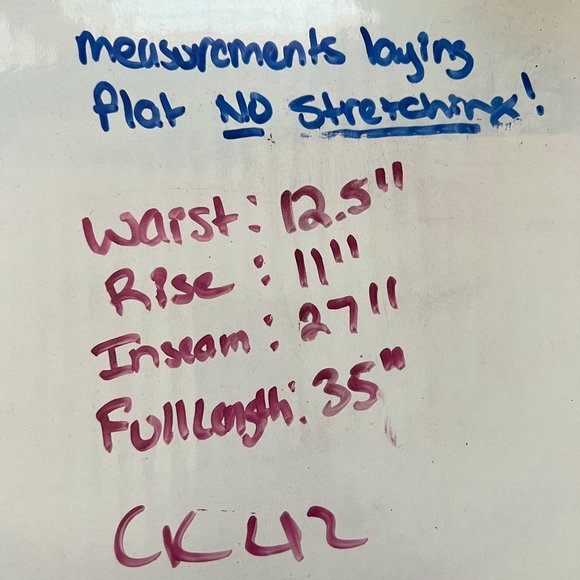 measurements laying
flat NO stretching!
Waist: 12.5"
Rise: 11"
Inseam: 27"
Full Length: 35"
CK42